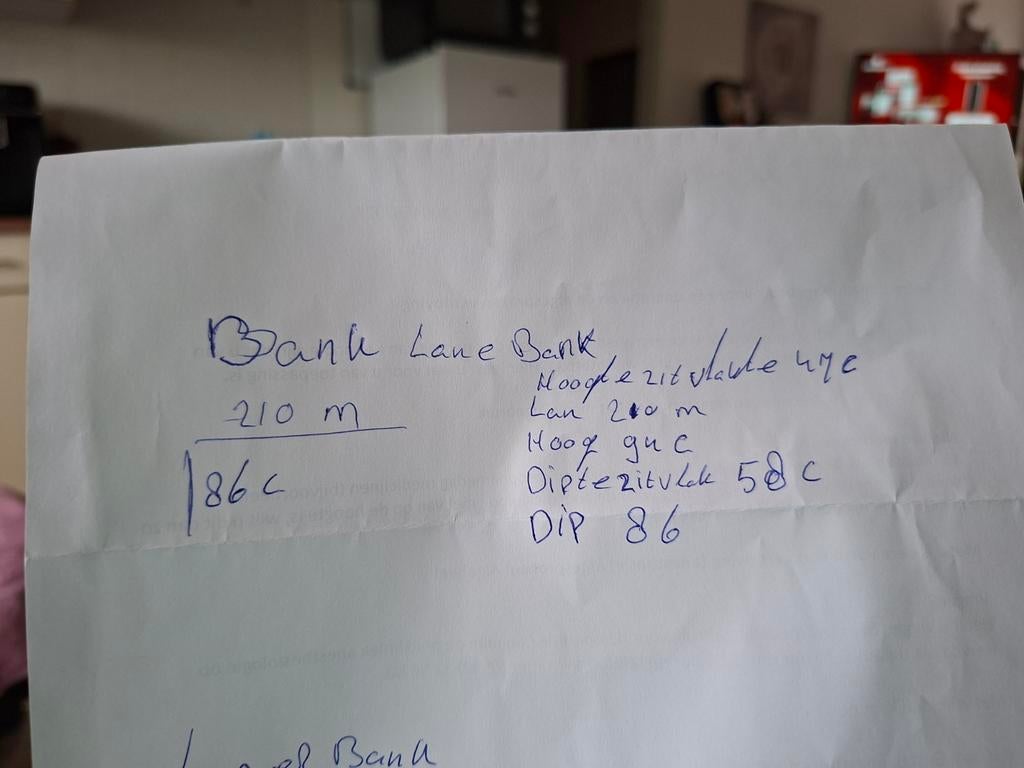 Bank Lane Bank
210 m
86 c
Hoogtezitvlakte 47 c
Lan 210 m
Hoog 94 c
Diptezitvlak 58 c
Dip 86
Bank